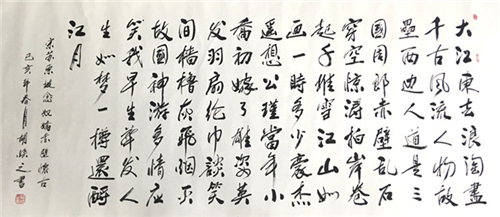 大江東去浪淘盡
千古風流人物故
壘西邊人道是三
國周郎赤壁乱石
穿空驚濤拍岸卷
起千堆雪江山如
画一時多少豪杰
遥想公瑾當年小
喬初嫁了雄姿英
发羽扇纶巾談笑
间檣櫓灰飛烟灭
故國神游多情应
笑我早生華发人
生如梦一樽還酹
江月
宋苏东坡念奴嬌赤壁懷古
己亥年春月胡之書